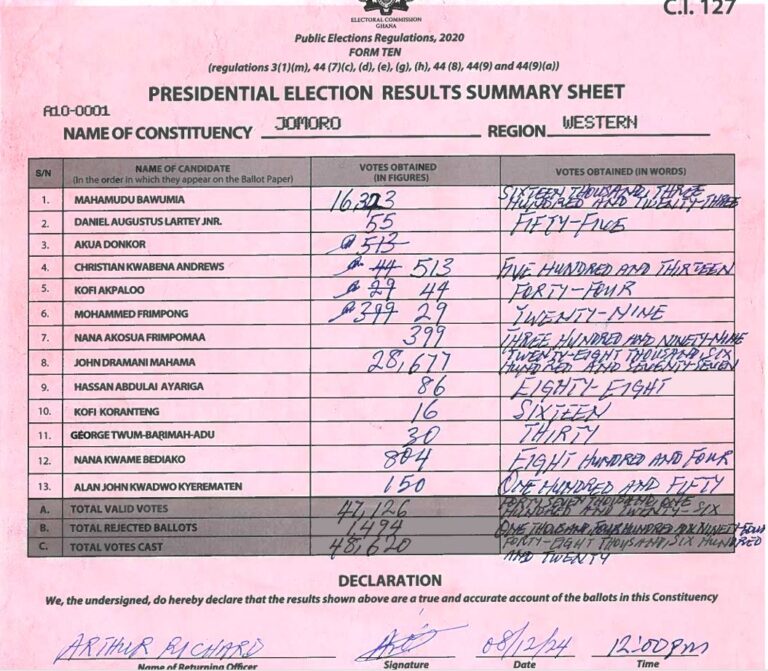 C.I. 127
ELECTORAL COMMISSION
GHANA
Public Elections Regulations, 2020
FORM TEN
(regulations 3(1)(m), 44 (7)(c), (d), (e), (g), (h), 44 (8), 44(9) and 44(9)(a))
PRESIDENTIAL ELECTION RESULTS SUMMARY SHEET
A10-0001
NAME OF CONSTITUENCY JOMORO REGION WESTERN
S/N NAME OF CANDIDATE (In the order in which they appear on the Ballot Paper) VOTES OBTAINED (IN FIGURES) VOTES OBTAINED (IN WORDS)
1. MAHAMUDU BAWUMIA 16,323 SIXTEEN THOUSAND, THREE HUNDRED AND TWENTY-THREE
2. DANIEL AUGUSTUS LARTEY JNR. 55 FIFTY-FIVE
3. AKUA DONKOR 513
4. CHRISTIAN KWABENA ANDREWS 44 513 FIVE HUNDRED AND THIRTEEN
5. KOFI AKPALOO 29 44 FORTY-FOUR
6. MOHAMMED FRIMPONG 399 29 TWENTY-NINE
7. NANA AKOSUA FRIMPOMAA 399 THREE HUNDRED AND NINETY-NINE
8. JOHN DRAMANI MAHAMA 28,677 TWENTY-EIGHT THOUSAND, SIX HUNDRED AND SEVENTY-SEVEN
9. HASSAN ABDULAI AYARIGA 86 EIGHTY-EIGHT
10. KOFI KORANTENG 16 SIXTEEN
11. GEORGE TWUM-BARIMAH-ADU 30 THIRTY
12. NANA KWAME BEDIAKO 804 EIGHT HUNDRED AND FOUR
13. ALAN JOHN KWADWO KYEREMATEN 150 ONE HUNDRED AND FIFTY
A. TOTAL VALID VOTES 47,126 FORTY SEVEN THOUSAND, ONE HUNDRED AND TWENTY-SIX
B. TOTAL REJECTED BALLOTS 1,494 ONE THOUSAND, FOUR HUNDRED AND NINETY-FOUR
C. TOTAL VOTES CAST 48,620 FORTY-EIGHT THOUSAND, SIX HUNDRED AND TWENTY
DECLARATION
We, the undersigned, do hereby declare that the results shown above are a true and accurate account of the ballots in this Constituency
ARTHUR RICHARD 08/12/24 12:00pm
Name of Returning Officer Signature Date Time